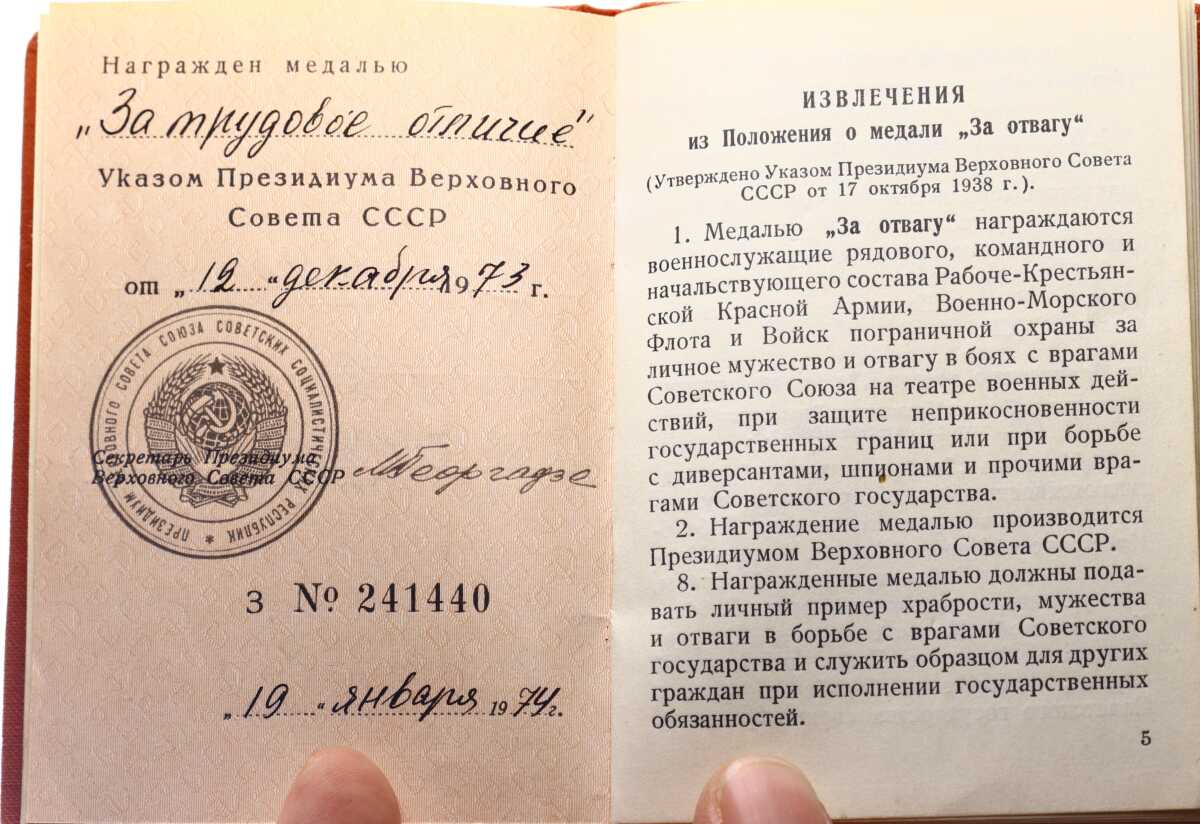 Награжден медалью
„За трудовое отличие"
Указом Президиума Верховного
Совета СССР
от „12 " декабря 1973 г.
ПРЕЗИДИУМ ВЕРХОВНОГО СОВЕТА СОЮЗА СОВЕТСКИХ СОЦИАЛИСТИЧЕСКИХ РЕСПУБЛИК *
Секретарь Президиума
Верховного Совета СССР МГеоргадзе
З № 241440
„19 " января 1974 г.
ИЗВЛЕЧЕНИЯ
из Положения о медали „За отвагу"
(Утверждено Указом Президиума Верховного Совета
СССР от 17 октября 1938 г.).
1. Медалью „За отвагу" награждаются
военнослужащие рядового, командного и
начальствующего состава Рабоче-Крестьян-
ской Красной Армии, Военно-Морского
Флота и Войск пограничной охраны за
личное мужество и отвагу в боях с врагами
Советского Союза на театре военных дей-
ствий, при защите неприкосновенности
государственных границ или при борьбе
с диверсантами, шпионами и прочими вра-
гами Советского государства.
2. Награждение медалью производится
Президиумом Верховного Совета СССР.
8. Награжденные медалью должны пода-
вать личный пример храбрости, мужества
и отваги в борьбе с врагами Советского
государства и служить образцом для других
граждан при исполнении государственных
обязанностей.
5